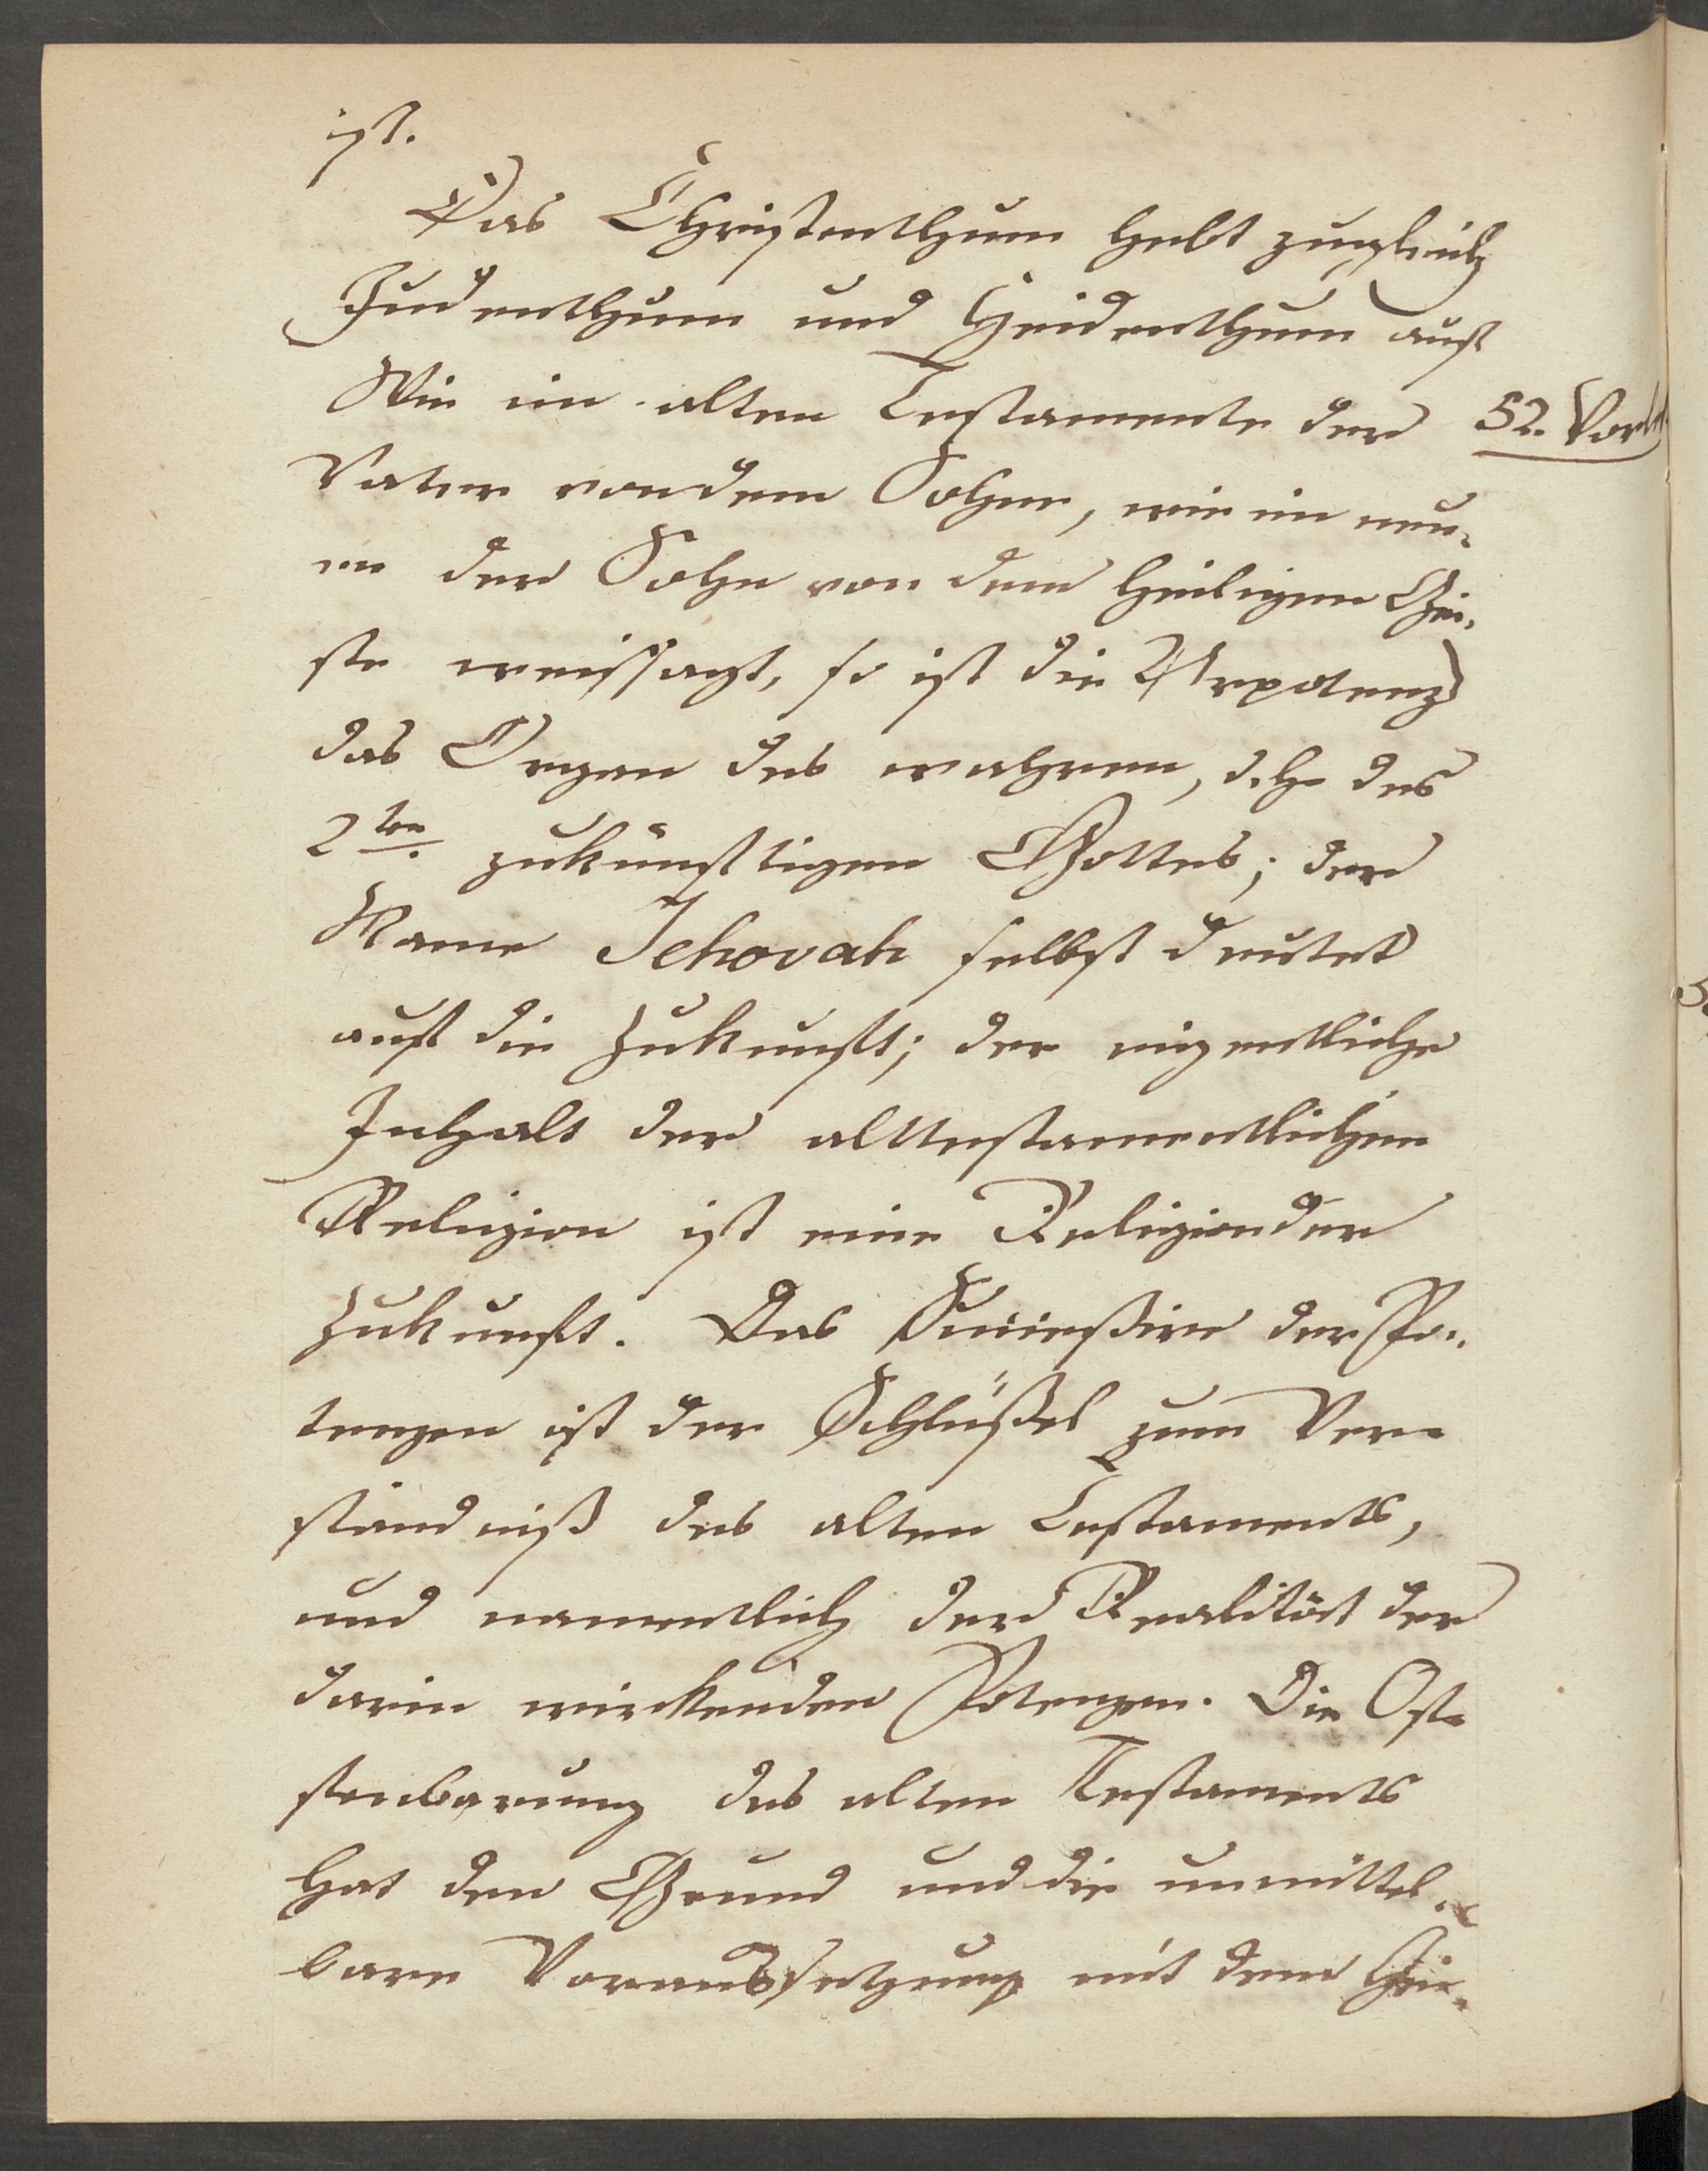 ist.
Das Christenthum hebt zugleich
Judenthum und Heidenthum auf
Wie im alten Testamente der
52. Vorl.
Vater von dem Sohne, wie im neu-
en der Sohn von dem heiligen Gei-
ste weissagt, so ist die Urpotenz
das Organ des wahren, d.h. des
2ten. zukünftigen Gottes; der
Name Jehovah selbst deutet
auf die Zukunft; der eigentliche
Inhalt der alttestamentlichen
Religion ist eine Religion der
Zukunft. Das Succeßive der Po-
tenzen ist der Schlüßel zum Ver-
ständniß des alten Testaments,
und namentlich der Realität der
darin wirkenden Potenzen. Die Of-
fenbarung des alten Testaments
hat den Grund und die unmittel-
bare Voraussetzung mit dem Hei-